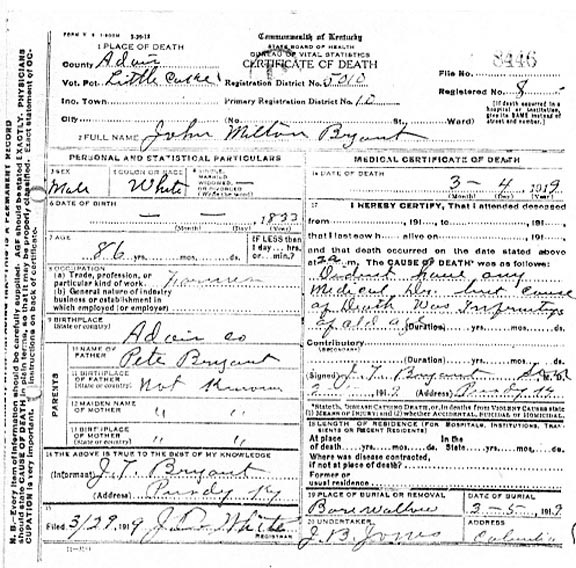 FORM V. S. 1-500M 3-29-18
Commonwealth of Kentucky
STATE BOARD OF HEALTH
BUREAU OF VITAL STATISTICS
CERTIFICATE OF DEATH
1 PLACE OF DEATH
County Adair
Vot. Pct. Little Cake
Inc. Town
City
(No. St., Ward)
Registration District No. 5010
Primary Registration District No. 10
File No. 8446
Registered No. 8
[If death occurred in a hospital or institution, give its NAME instead of street and number.]
2 FULL NAME John Milton Bryant
PERSONAL AND STATISTICAL PARTICULARS
3 SEX
Male
4 COLOR OR RACE
White
5 SINGLE, MARRIED, WIDOWED, OR DIVORCED (Write the word)
6 DATE OF BIRTH
— — 1833
(Month) (Day) (Year)
7 AGE
86 yrs. mos. ds.
IF LESS than 1 day... hrs. or... min.?
8 OCCUPATION
(a) Trade, profession, or particular kind of work. Farmer
(b) General nature of industry business or establishment in which employed (or employer)
9 BIRTHPLACE
(State or country) Adair co
PARENTS
10 NAME OF FATHER Pete Bryant
11 BIRTHPLACE OF FATHER (State or country) Not Known
12 MAIDEN NAME OF MOTHER " "
13 BIRTHPLACE OF MOTHER (State or country) " "
14 THE ABOVE IS TRUE TO THE BEST OF MY KNOWLEDGE
(Informant) J. T. Bryant
(Address) Purdy Ky
15
Filed 3/29, 1919 J. D. White
REGISTRAR
MEDICAL CERTIFICATE OF DEATH
16 DATE OF DEATH
3 - 4, 1919
(Month) (Day) (Year)
17 I HEREBY CERTIFY, That I attended deceased
from , 191 , to , 191 ,
that I last saw h alive on , 191 ,
and that death occurred on the date stated above
at 2 a m. The CAUSE OF DEATH* was as follows:
Did not have any
Medical Dr. but Cause
of Death Was Infirmitys
of old age
(Duration) yrs. mos. ds.
Contributory
(SECONDARY)
(Duration) yrs. mos. ds.
(Signed) J. T. Bryant
, 1919 (Address) Purdy Ky
*State the DISEASE CAUSING DEATH, or, in deaths from VIOLENT CAUSES state (1) MEANS OF INJURY; and (2) whether ACCIDENTAL, SUICIDAL or HOMICIDAL.
18 LENGTH OF RESIDENCE (FOR HOSPITALS, INSTITUTIONS, TRANSIENTS OR RECENT RESIDENTS)
At place of death yrs. mos. ds. In the State yrs. mos. ds.
Where was disease contracted, if not at place of death?
Former or usual residence
19 PLACE OF BURIAL OR REMOVAL
Bare Wallow
DATE OF BURIAL
3 - 5, 1919
20 UNDERTAKER
J. B. Jones
ADDRESS
Columbia
N. B.—Every item of information should be carefully supplied. AGE should be stated EXACTLY. PHYSICIANS should state CAUSE OF DEATH in plain terms, so that it may be properly classified. Exact statement of OCCUPATION is very important. Instructions on back of certificate.
IS A PERMANENT RECORD